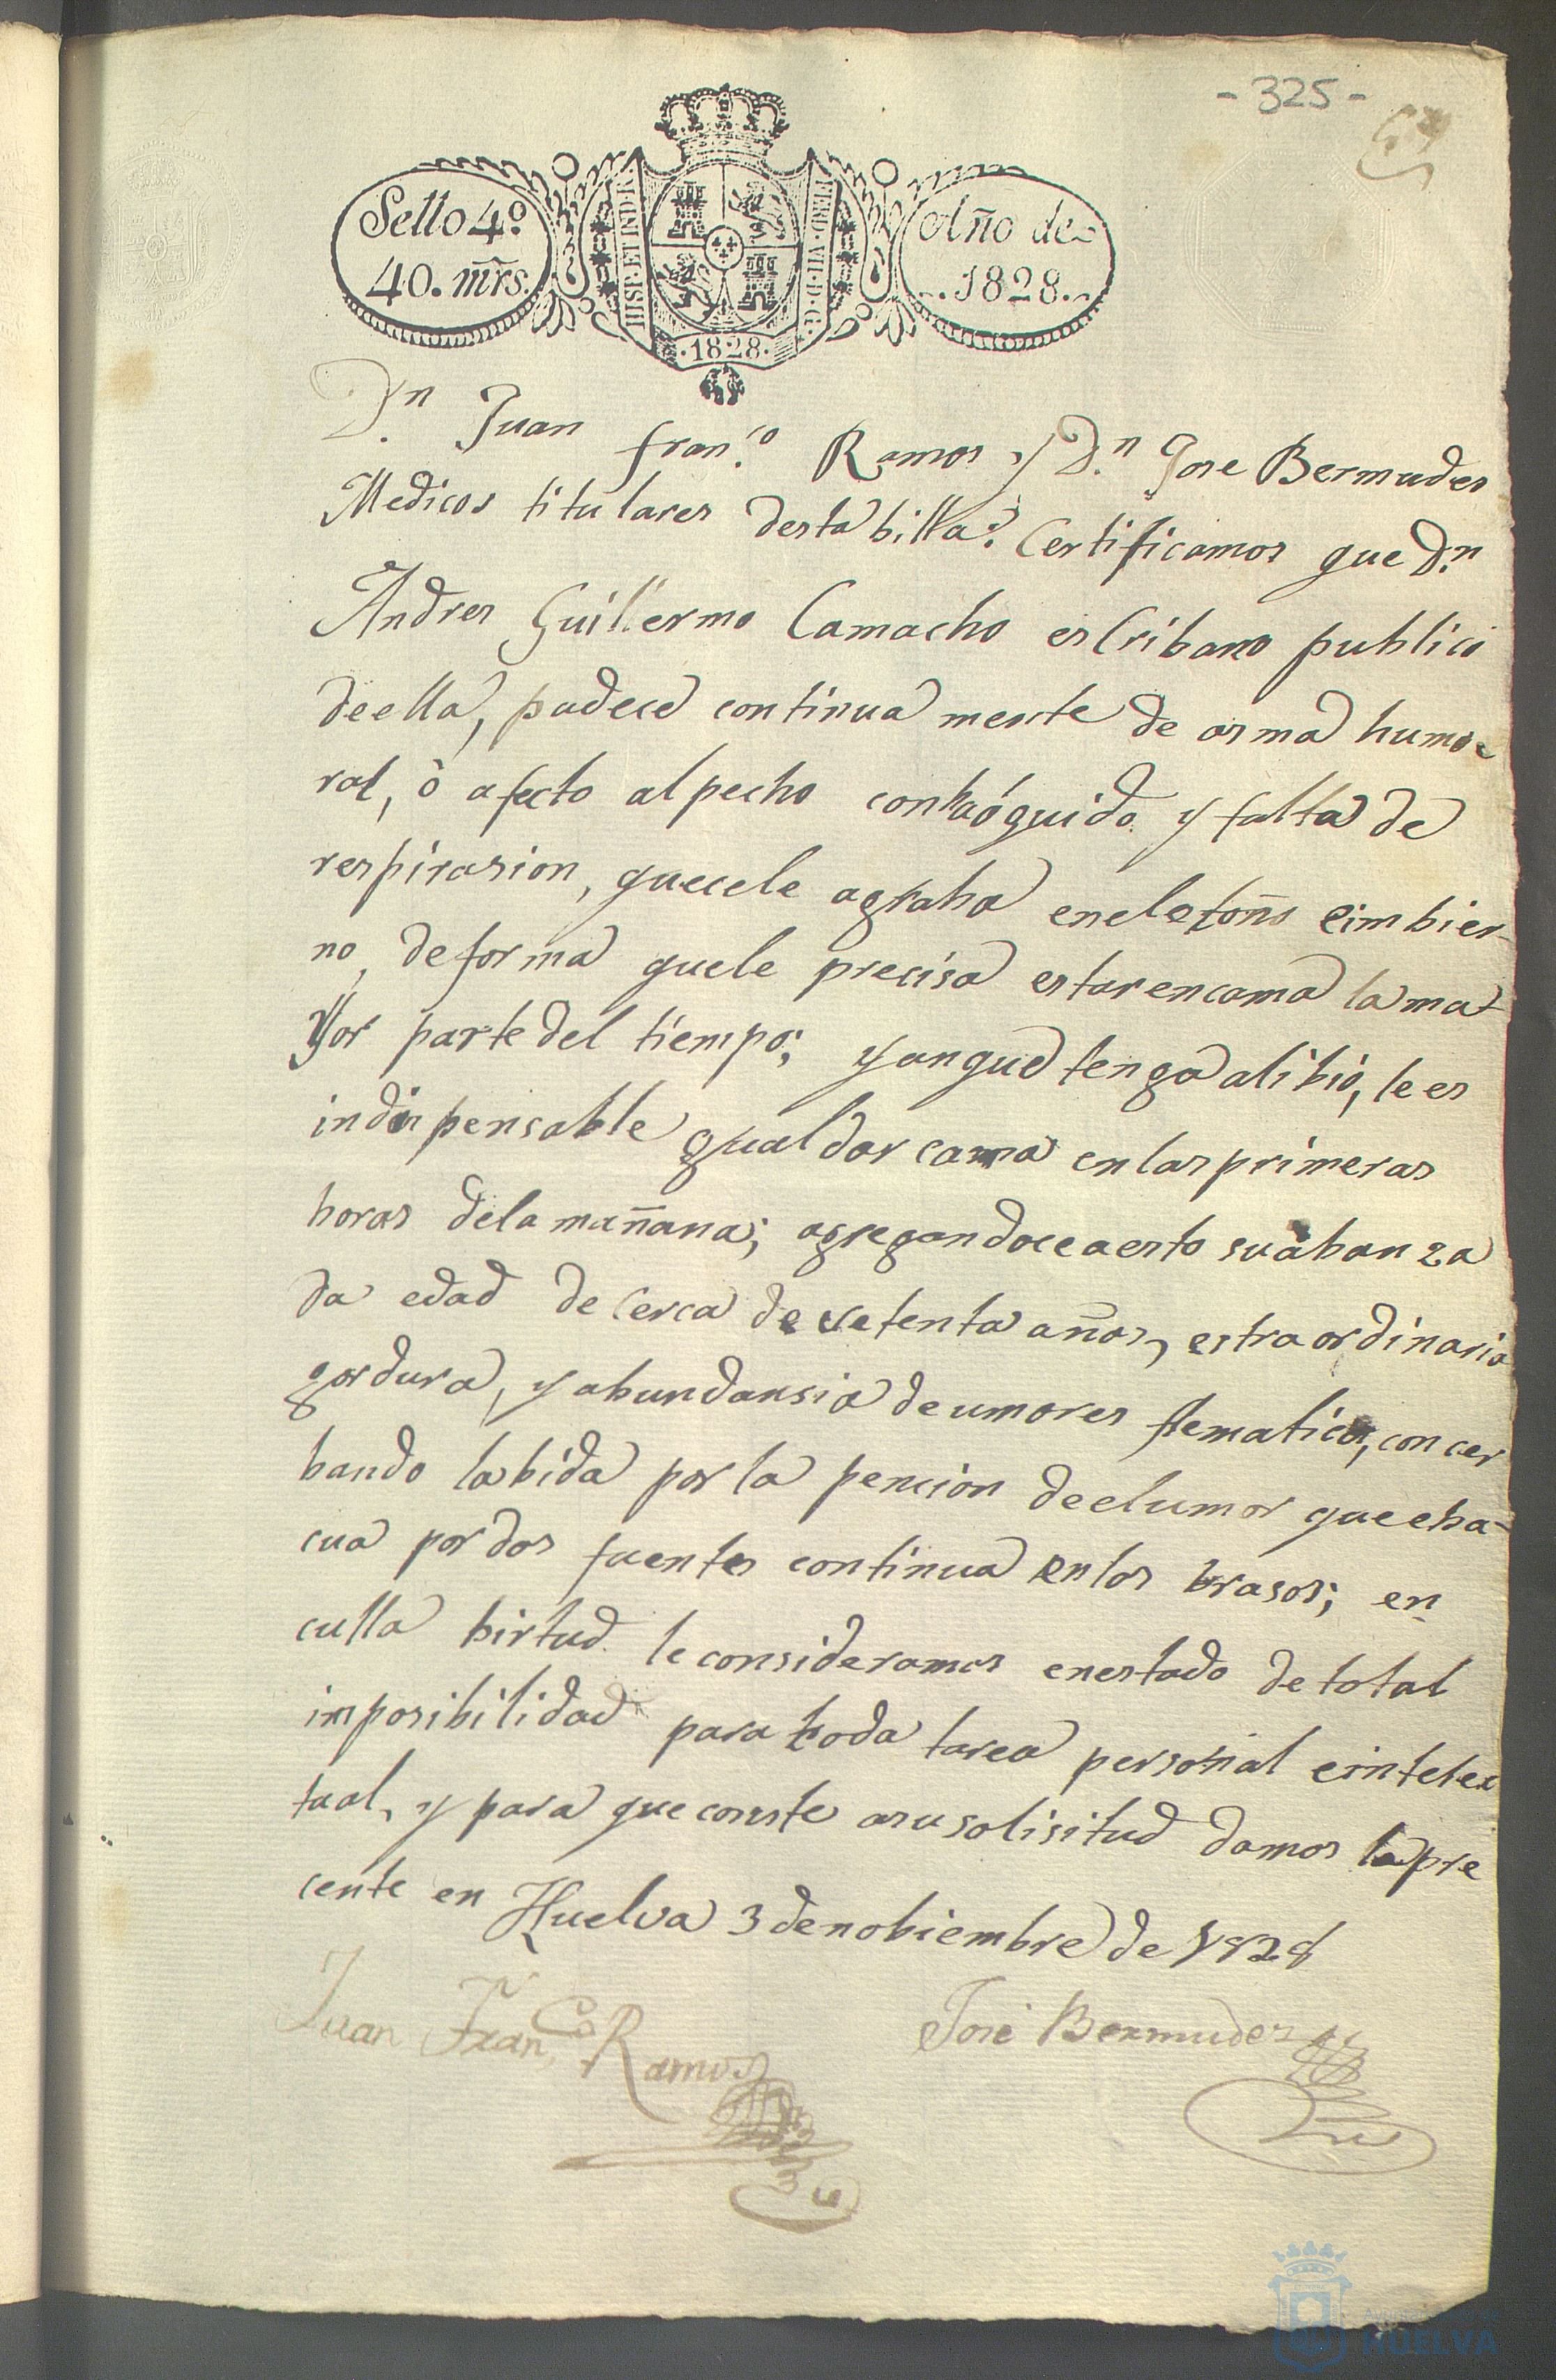 - 325 -
Sello 4.º
40. mrs.
HISP. ET IND. R.
FERD. VII. D. G.
.1828.
Año de
.1828.
D.n Juan fran.co Ramos y D.n Jose Bermudes
Medicos titulares desta billa: Certificamos que D.n
Andres Guillermo Camacho esCribano publico
deella, padece continua mente de asma humo
ral, ò afecto al pecho con y falta de
respirasion, quecele agraba enel otoño eimbier-
no, deforma quele precisa estarencama la ma-
Yor parte del tiempo; yanque tenga alibio, le es
indispensable gualdar cama enlas primeras
horas dela mañana; agregandoceaesto suabanza
da edad de cerca de cetenta años, estraordinaria
gordura, y abundansia deumores flematicos, concer
bando labida por la pencion deelumor queeba-
cua por dos fuentes continua enlos brasos; en
culla birtud leconsideramos enestado detotal
imposibilidad para toda tarea personal eintelec
tual, y para queconste asusolisitud damos lapre
cente en Huelva 3 denobiembre de 1828
Juan Fran.co Ramos
José Bermudez
HUELVA